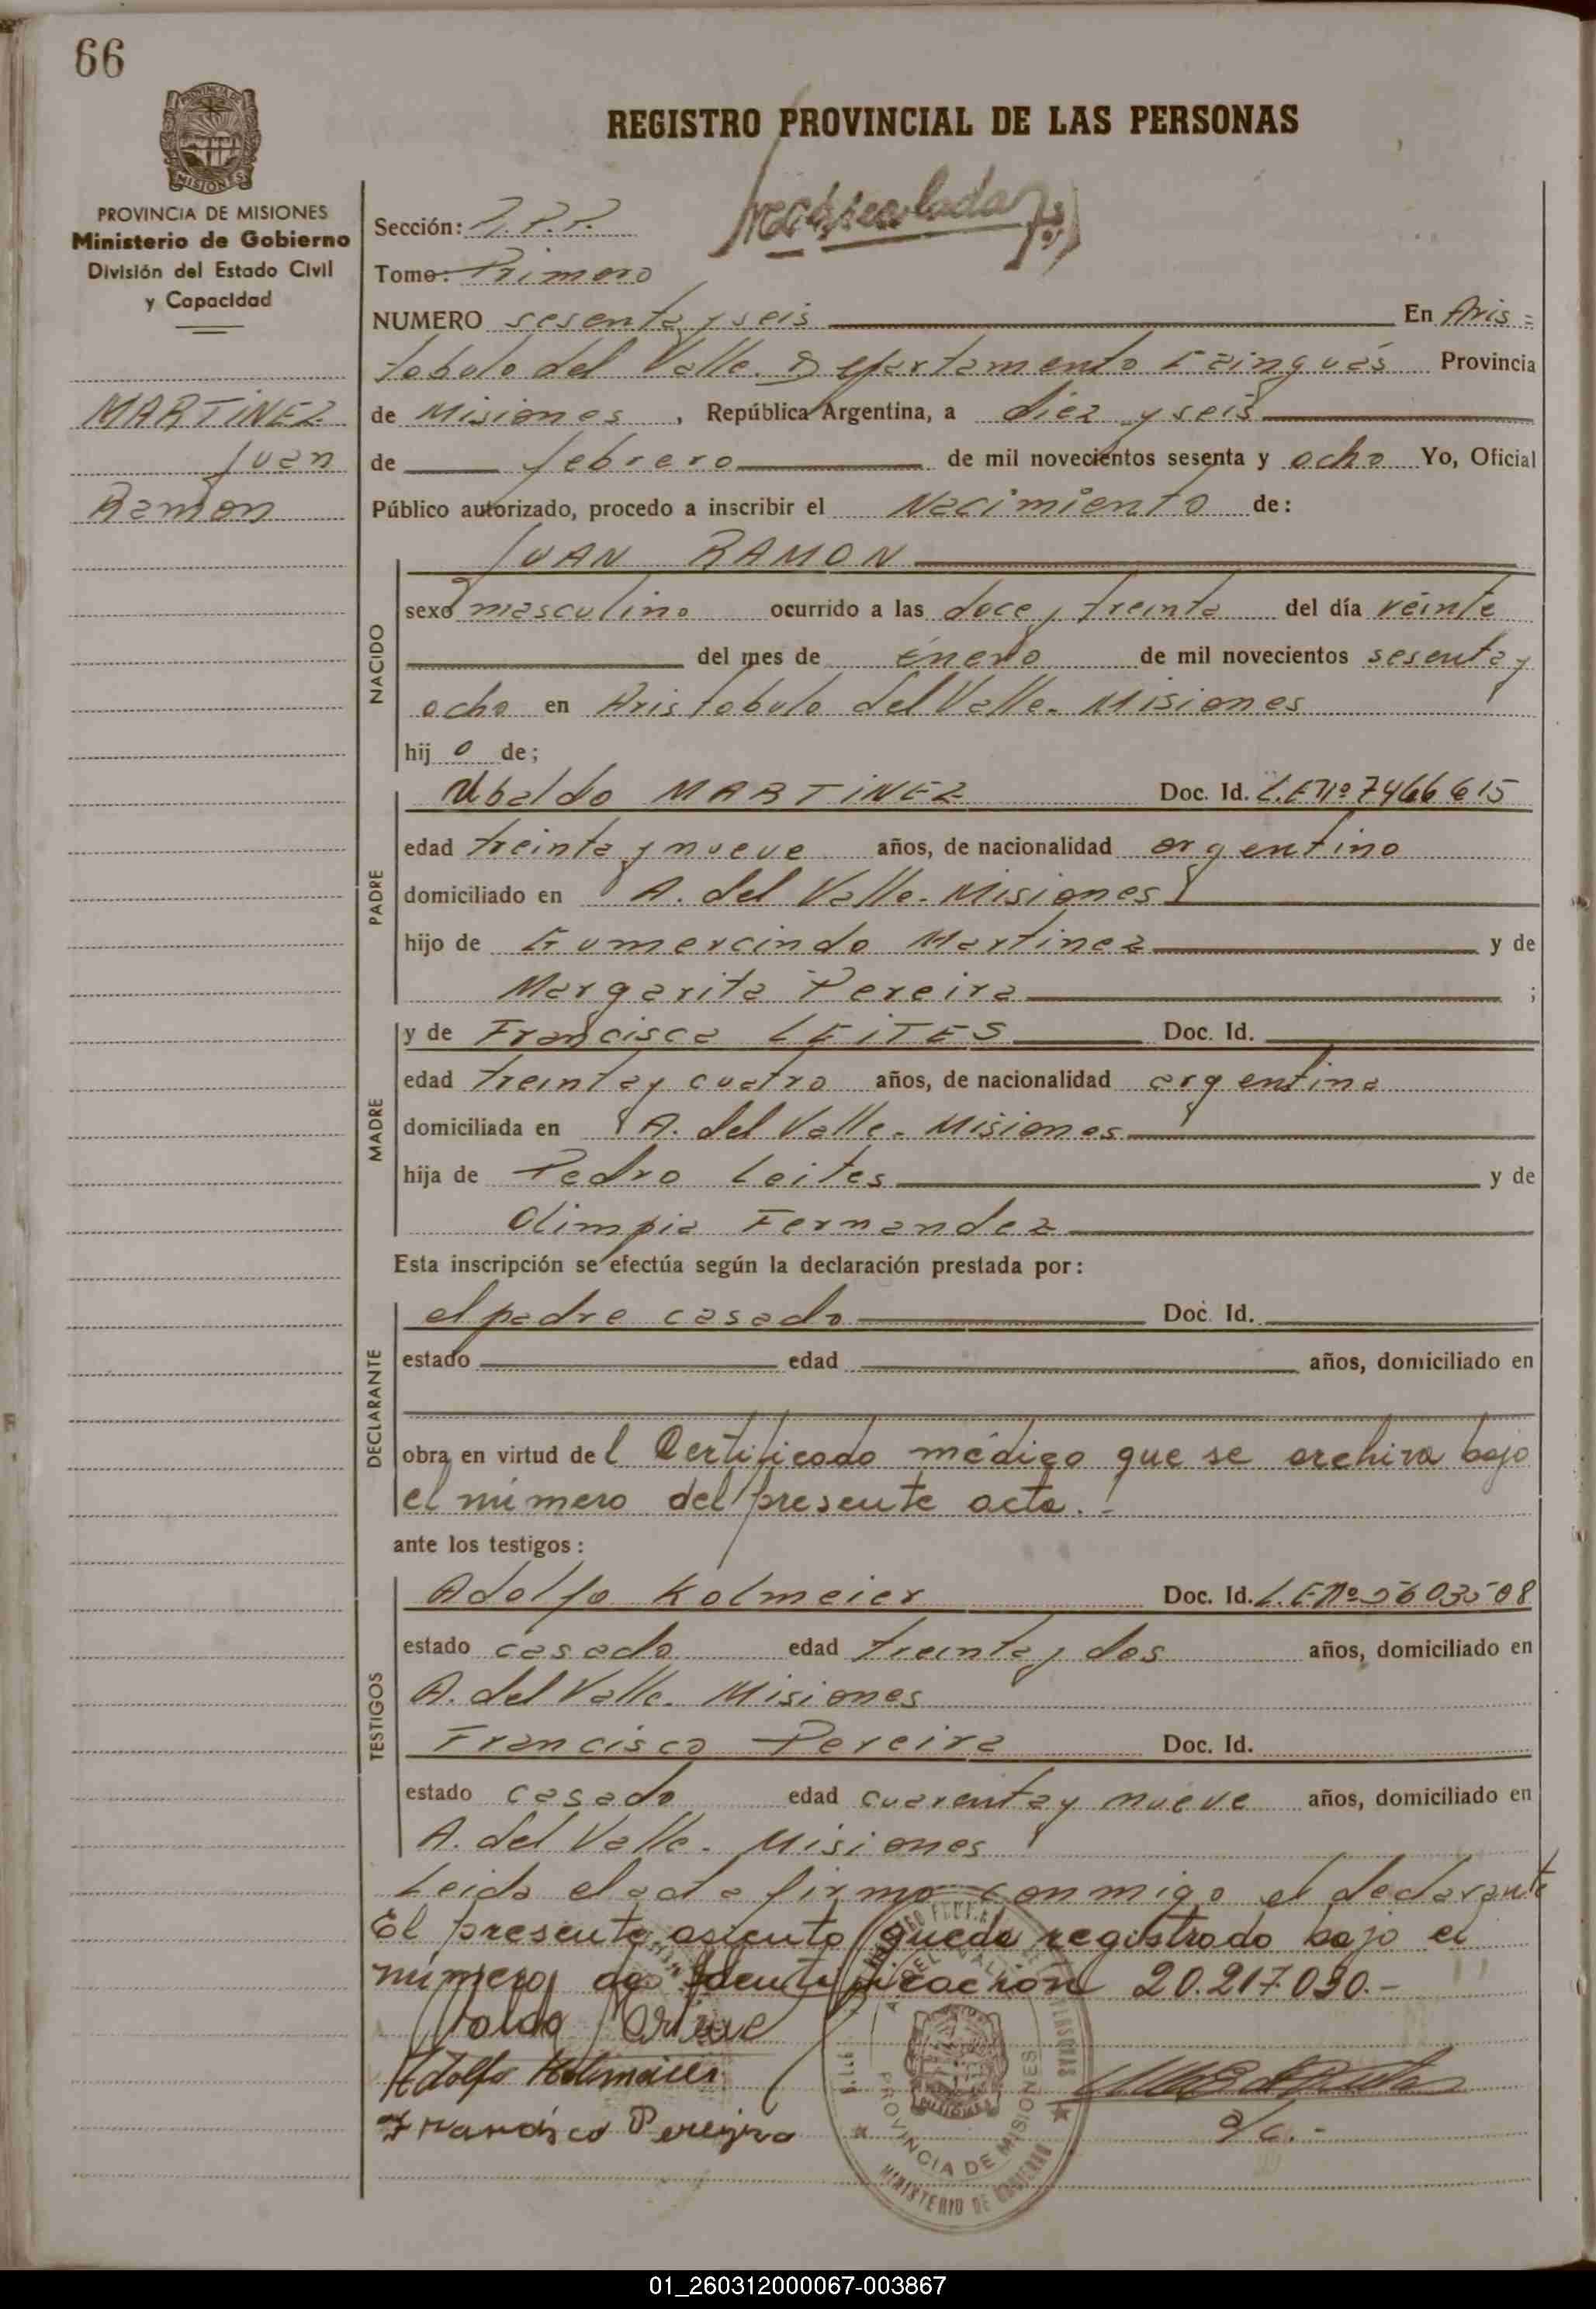 66
REGISTRO PROVINCIAL DE LAS PERSONAS
PROVINCIA DE MISIONES
Ministerio de Gobierno
División del Estado Civil
y Capacidad
MARTINEZ
Juan
Ramon
Sección:
Tomo: Primero
NUMERO sesenta y seis En Aris=
tobulo del Valle. Departamento Cainguás Provincia
de Misiones, República Argentina, a diez y seis
de febrero de mil novecientos sesenta y ocho Yo, Oficial
Público autorizado, procedo a inscribir el Nacimiento de:
NACIDO
JUAN RAMON
sexo masculino ocurrido a las doce y treinta del día veinte
del mes de enero de mil novecientos sesenta y
ocho en Aristobulo del Valle. Misiones
hij o de;
PADRE
Ubaldo MARTINEZ Doc. Id. L.E Nº 7466615
edad treinta y nueve años, de nacionalidad argentino
domiciliado en A. del Valle. Misiones
hijo de Gumercindo Martinez y de
Margarita Pereira ;
MADRE
y de Francisca LEITES Doc. Id.
edad treinta y cuatro años, de nacionalidad argentina
domiciliada en A. del Valle. Misiones
hija de Pedro Leites y de
Olimpia Fernandez
Esta inscripción se efectúa según la declaración prestada por:
DECLARANTE
el padre casado Doc. Id.
estado edad años, domiciliado en
obra en virtud del Certificado médico que se archiva bajo
el número del presente acta.-
ante los testigos:
TESTIGOS
Adolfo Kolmeier Doc. Id. L.E Nº 5603508
estado casado edad treinta y dos años, domiciliado en
A. del Valle. Misiones
Francisco Pereira Doc. Id.
estado casado edad cuarenta y nueve años, domiciliado en
A. del Valle. Misiones
Leida el acta firma conmigo el declarante
El presente asiento queda registrado bajo el
número de Identificación 20.217.030.-
Adolfo Kolmeier
Francisco Pereira
PROVINCIA DE MISIONES
MINISTERIO DE GOBIERNO
01_260312000067-003867